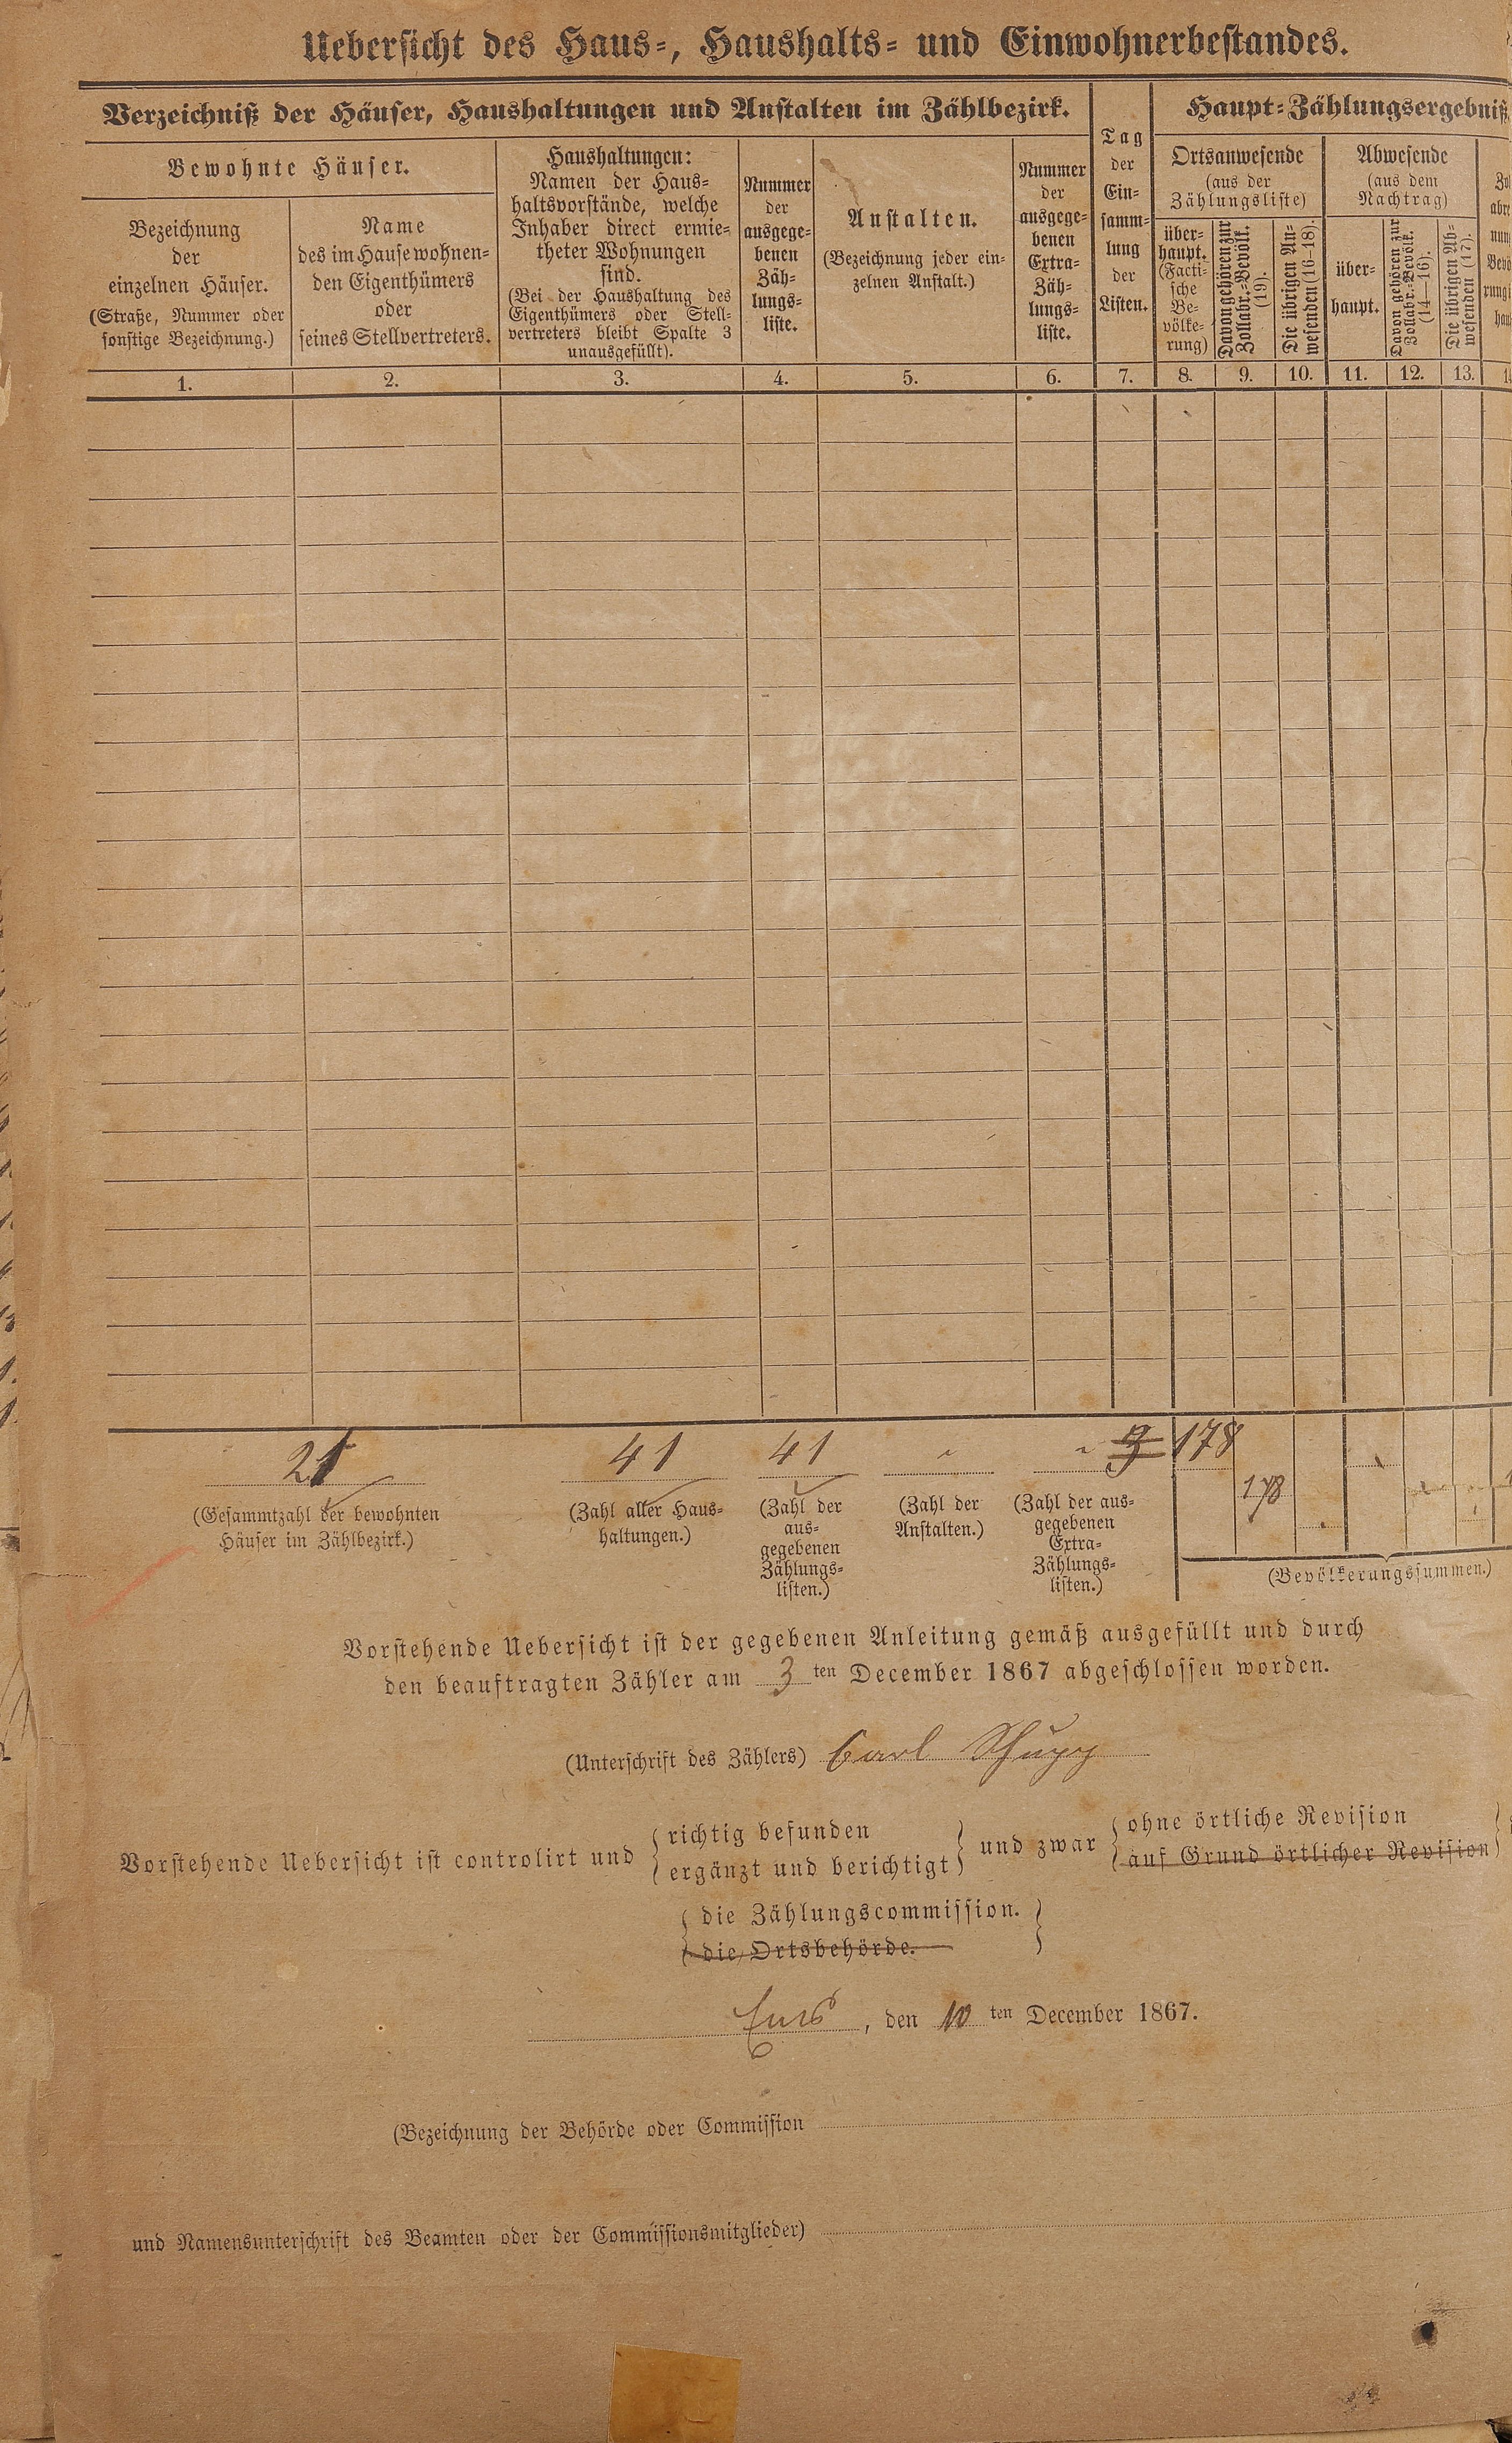 Uebersicht des Haus-, Haushalts- und Einwohnerbestandes.
Verzeichniß der Häuser, Haushaltungen und Anstalten im Zählbezirk.
Bewohnte Häuser.
Bezeichnung
der
einzelnen Häuser.
(Straße, Nummer oder
sonstige Bezeichnung.)
Name
des im Hause wohnen-
den Eigenthümers
oder
seines Stellvertreters.
Haushaltungen:
Namen der Haus-
haltsvorstände, welche
Inhaber direct ermie-
theter Wohnungen
sind.
(Bei der Haushaltung des
Eigenthümers oder Stell-
vertreters bleibt Spalte 3
unausgefüllt).
Nummer
der
ausgege-
benen
Zäh-
lungs-
liste.
Anstalten.
(Bezeichnung jeder ein-
zelnen Anstalt.)
Nummer
der
ausgege-
benen
Extra-
Zäh-
lungs-
liste.
Tag
der
Ein-
samm-
lung
der
Listen.
Haupt-Zählungsergebniß
Ortsanwesende
(aus der
Zählungsliste)
über-
haupt.
(Facti-
sche
Be-
völke-
rung)
Davon gehören zur
Zollabr.-Bevölk.
(19).
Die übrigen An-
wesenden (16-18).
Abwesende
(aus dem
Nachtrag)
über-
haupt.
Davon gehören zur
Zollabr.-Bevölk.
(14—16).
Die übrigen Ab-
wesenden (17).
1. 2. 3. 4. 5. 6. 7. 8. 9. 10. 11. 12. 13.
21 41 41 178
178
(Gesammtzahl der bewohnten
Häuser im Zählbezirk.)
(Zahl aller Haus-
haltungen.)
(Zahl der
aus-
gegebenen
Zählungs-
listen.)
(Zahl der
Anstalten.)
(Zahl der aus-
gegebenen
Extra-
Zählungs-
listen.)
(Bevölkerungssummen.)
Vorstehende Uebersicht ist der gegebenen Anleitung gemäß ausgefüllt und durch
den beauftragten Zähler am 3 ten December 1867 abgeschlossen worden.
(Unterschrift des Zählers) Carl Schupp
Vorstehende Uebersicht ist controlirt und { richtig befunden
ergänzt und berichtigt } und zwar { ohne örtliche Revision
auf Grund örtlicher Revision }
{ die Zählungscommission.
die Ortsbehörde. }
Ems, den 10 ten December 1867.
(Bezeichnung der Behörde oder Commission
und Namensunterschrift des Beamten oder der Commissionsmitglieder)